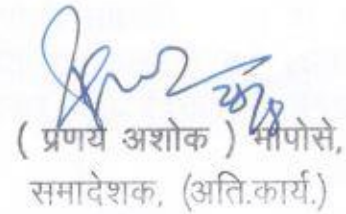 28/8
( प्रणय अशोक ) भापोसे,
समादेशक, (अति.कार्य.)